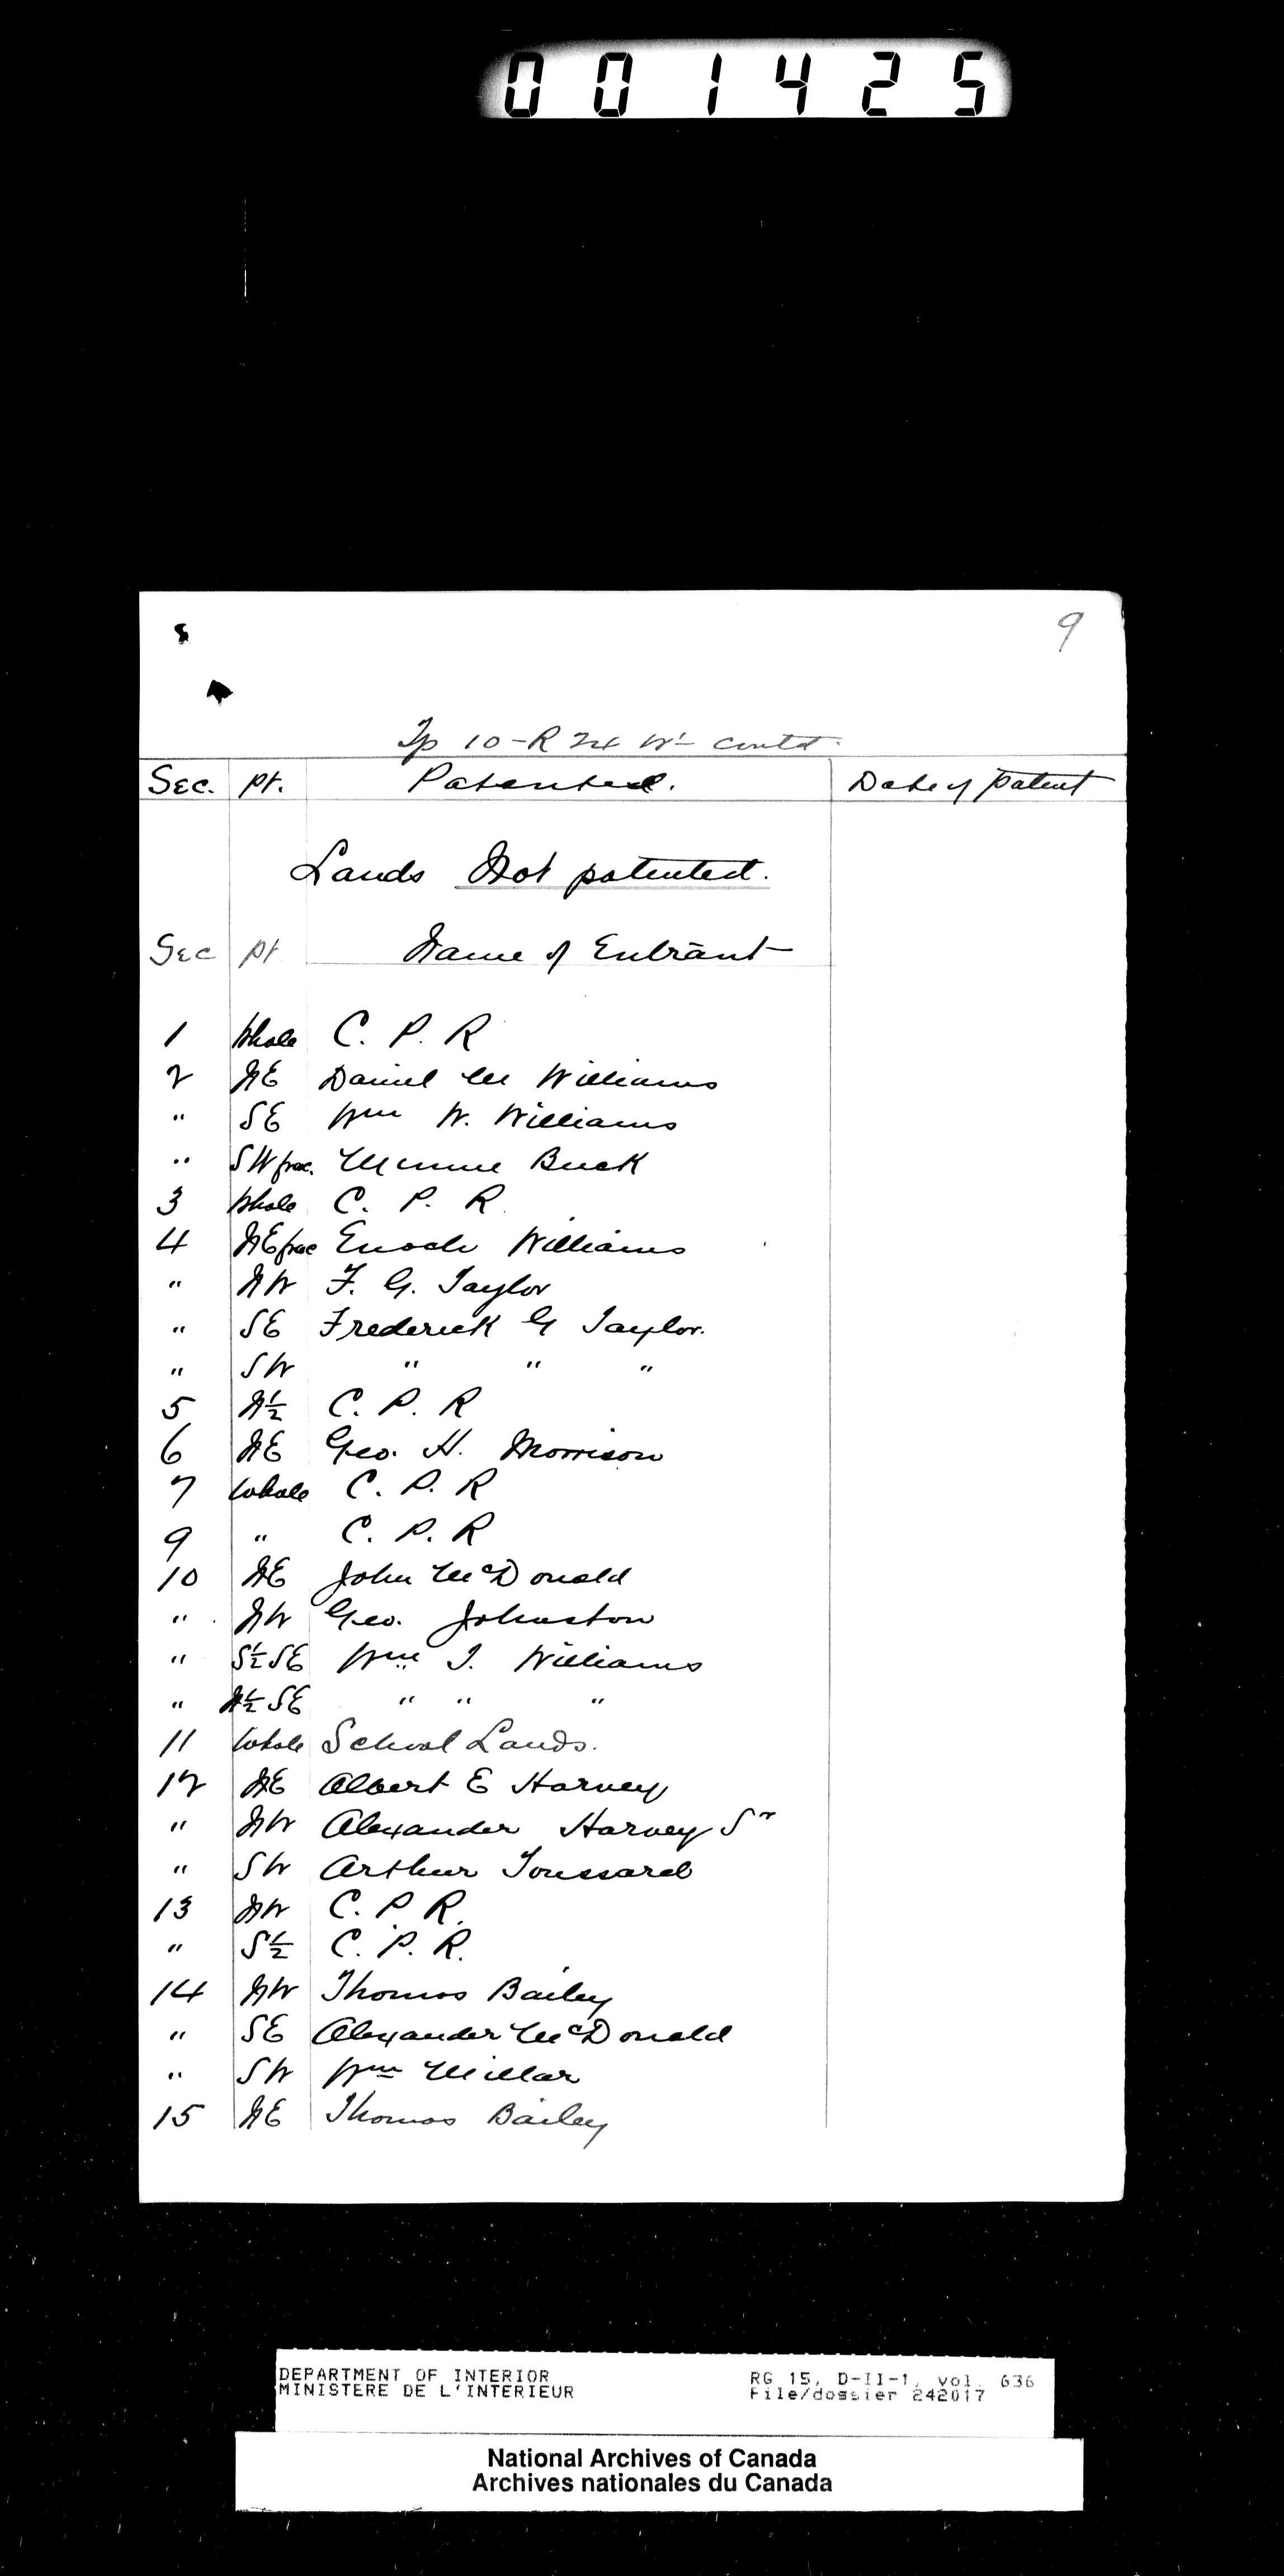 001425
9
Tp 10-R 24 W1 contd.
Sec. pt. Patented. Date of patent
Lands Not patented.
Sec pt Name of Entrant
1 Whole C. P. R
2 NE Daniel M Williams
" SE Wm W. Williams
" SW frac. Minnie Buck
3 Whole C. P. R.
4 NE frac Enoch Williams
" NW F. G. Taylor
" SE Frederick G Taylor.
" SW " " "
5 N½ C. P. R
6 NE Geo. H. Morrison
7 Whole C. P. R
9 " C. P. R
10 NE John McDonald
" NW Geo. Johnston
" S½ SE Wm J. Williams
" N½ SE " " "
11 Whole School Lands.
12 NE Albert E Harvey
" NW Alexander Harvey Sr
" SW Arthur Toussard
13 NW C. P R.
" S½ C. P. R.
14 NW Thomas Bailey
" SE Alexander McDonald
" SW Wm Millar
15 NE Thomas Bailey
DEPARTMENT OF INTERIOR RG 15, D-II-1, vol. 636
MINISTERE DE L'INTERIEUR File/dossier 242017
National Archives of Canada
Archives nationales du Canada